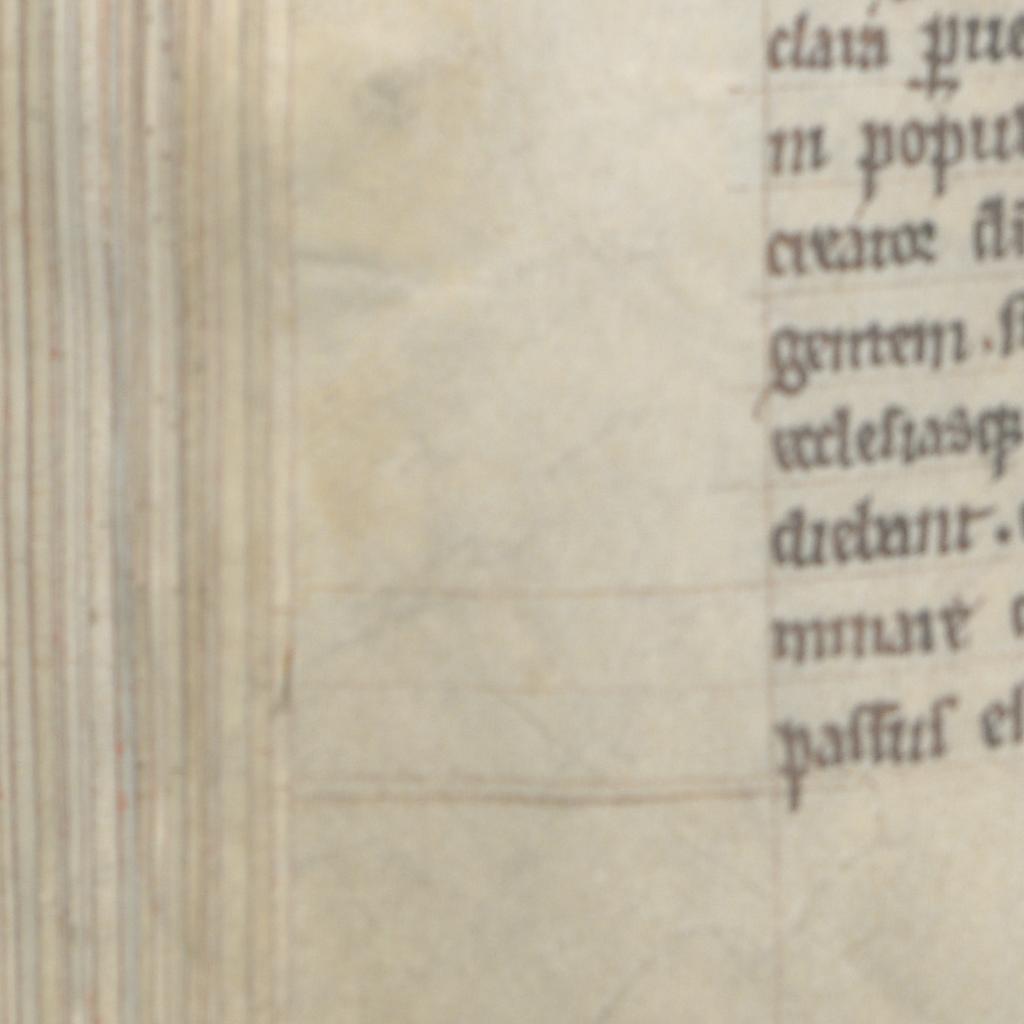 clam
in popul
creator
gentem .
ecclesiasq;
diebant .
minare
passus es